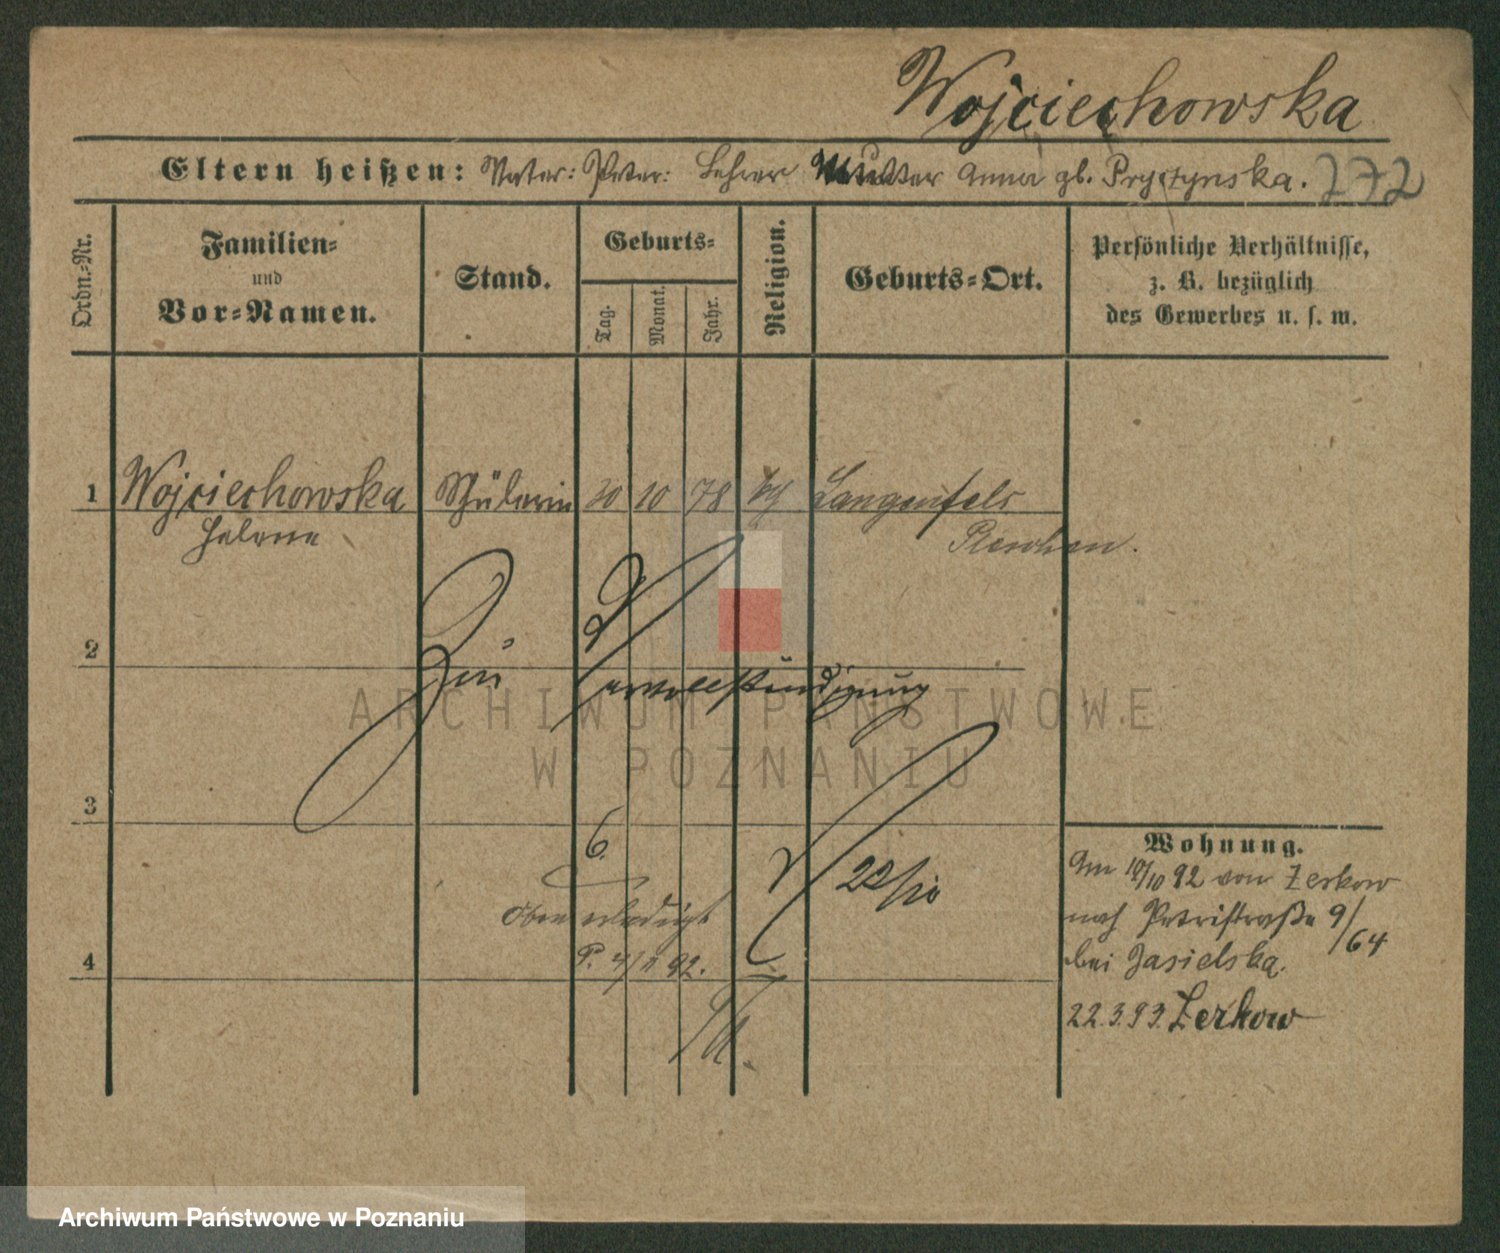 Wojciechowska
Eltern heißen: Vater: Peter: Lehrer Mutter Anna gb. Pryczynska. 272
Ordn.-Nr.
Familien-
und
Vor-Namen.
Stand.
Geburts-
Tag.
Monat.
Jahr.
Religion.
Geburts-Ort.
Persönliche Verhältnisse,
z. B. bezüglich
des Gewerbes u. s. w.
1 Wojciechowska Schülerin 30 10 78 kth Langenfels
Helene Pleschen.
2
Zur Vervollständigung
3
6.
22/10
Oben erledigt
P. 4/11 92.
4
Wohnung.
Am 19/10 92 von Zerkow
nach Petristraße 9/64
bei Jasielska.
22.3.93. Zerkow
ARCHIWUM PAŃSTWOWE
W POZNANIU
Archiwum Państwowe w Poznaniu